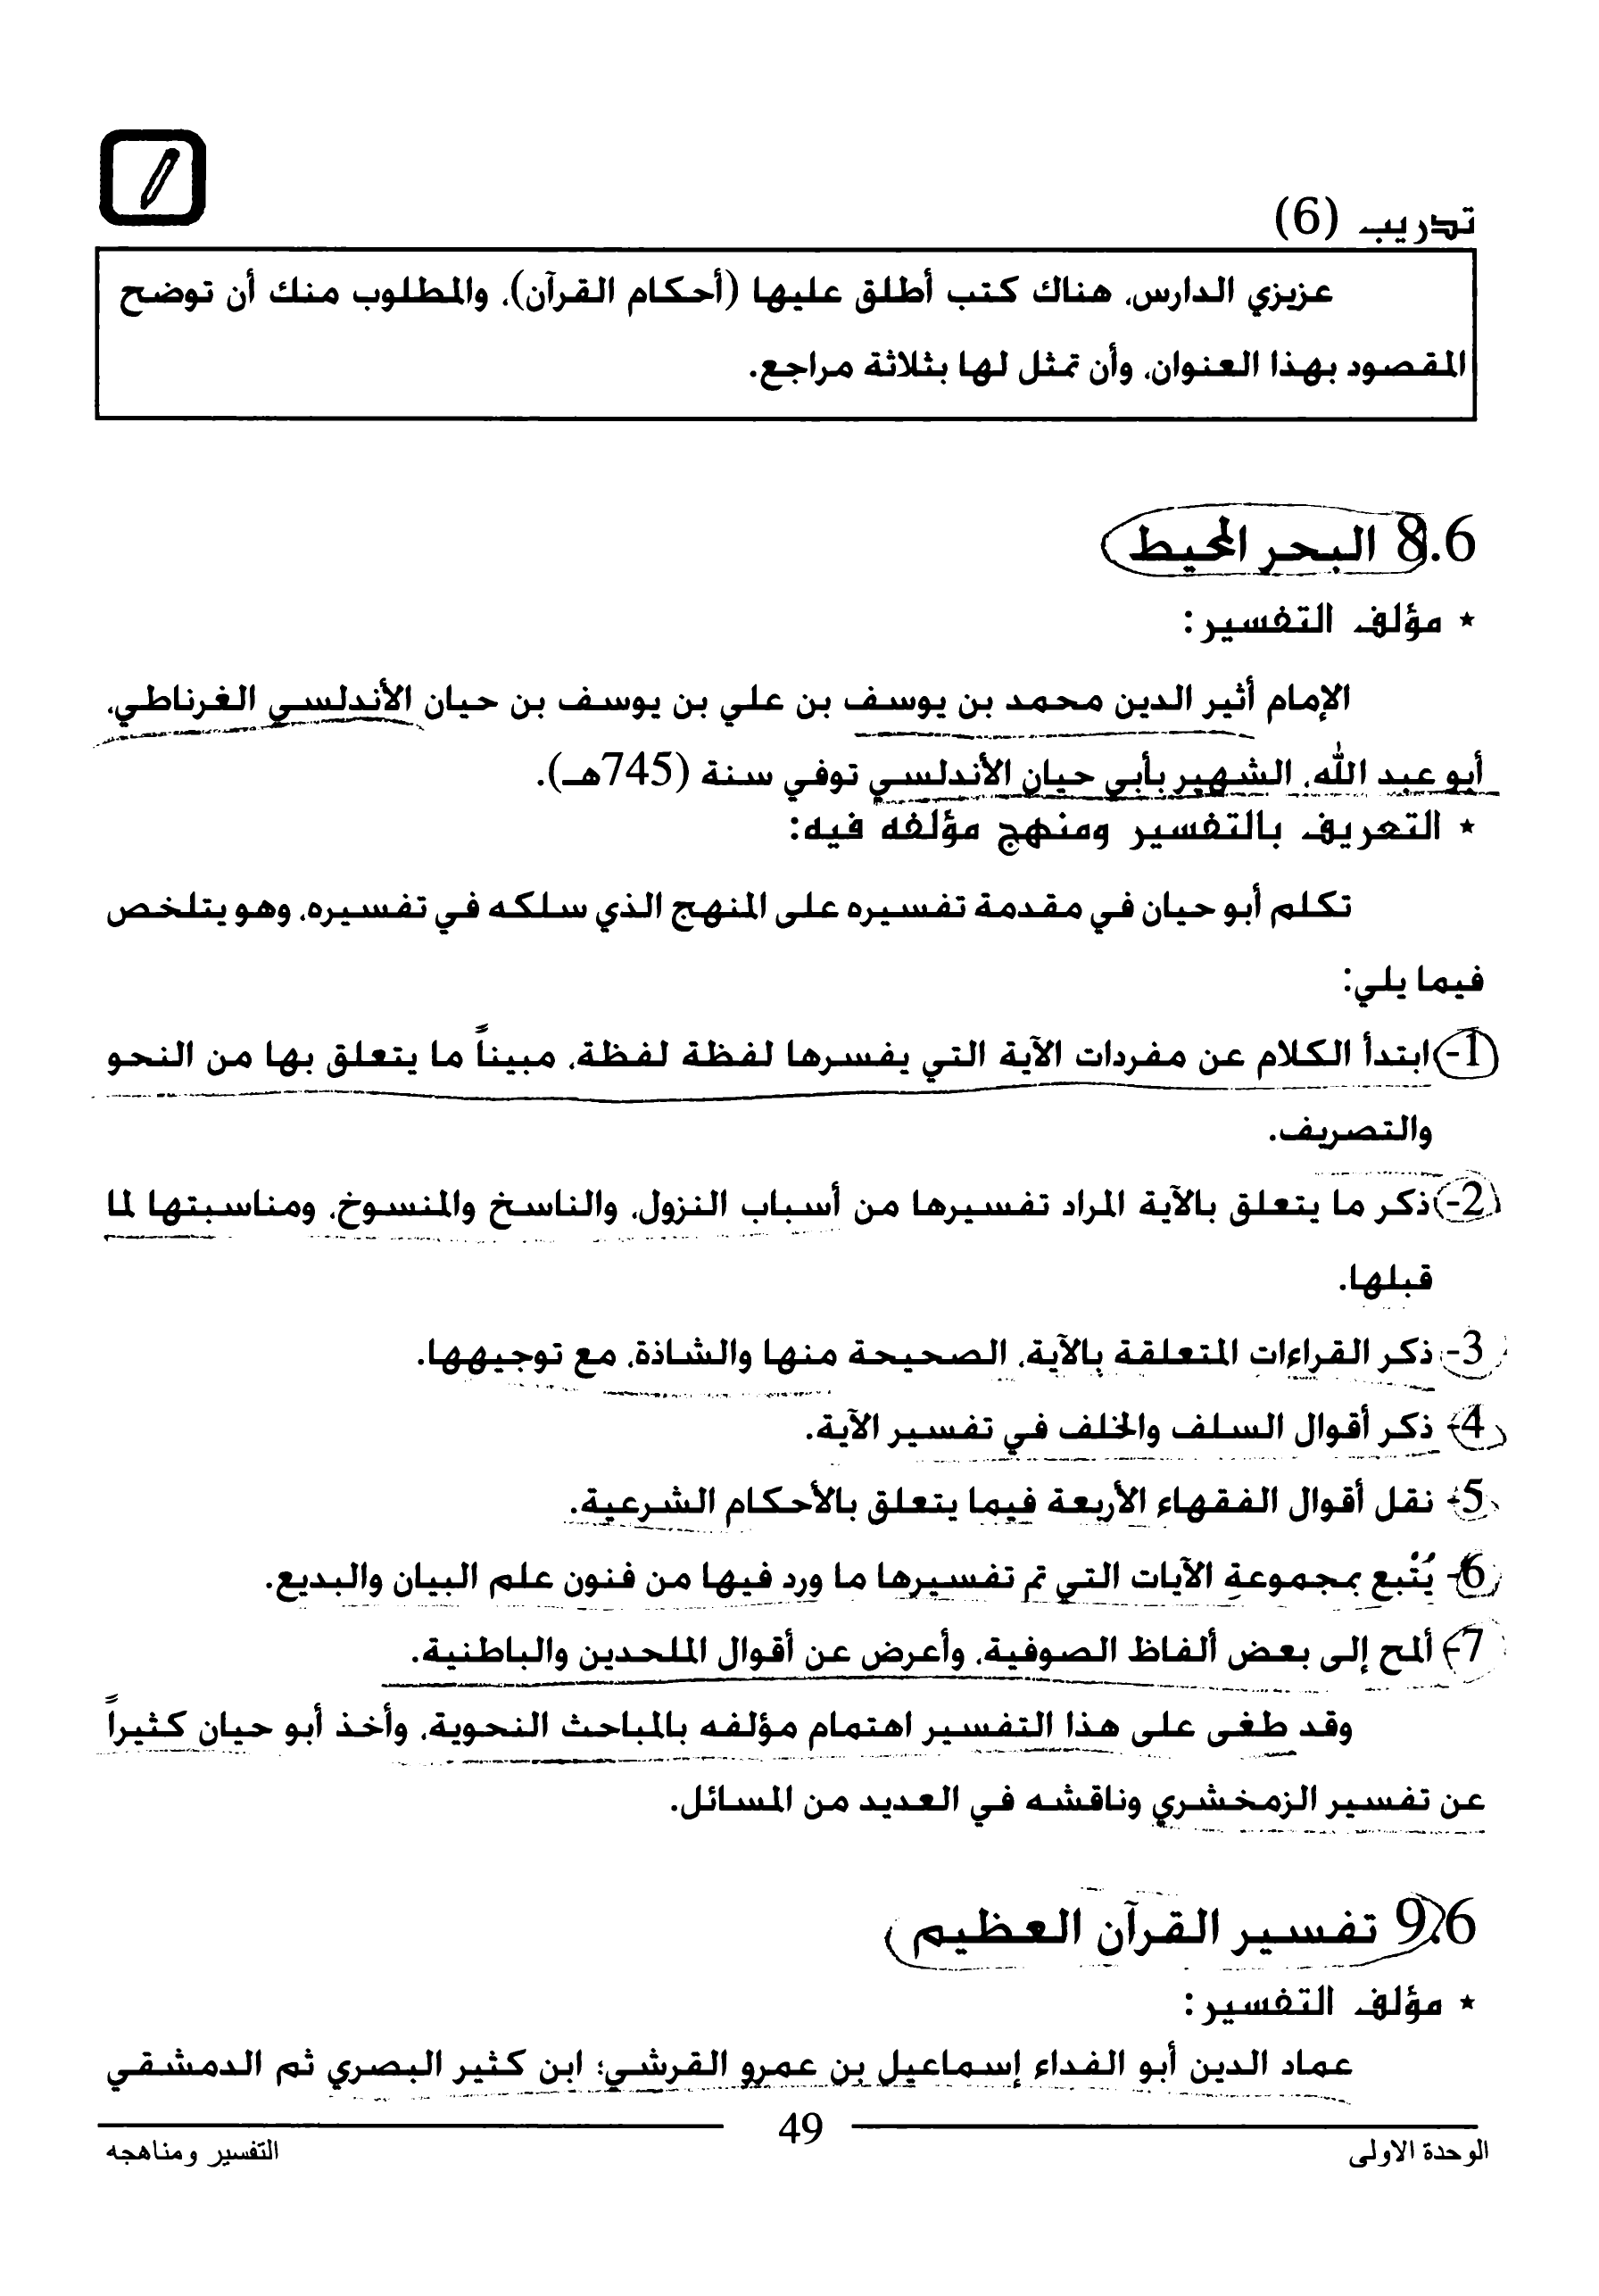 تدريب (6)
عزيزي الدارس، هناك كتب أطلق عليها (أحكام القرآن)، والمطلوب منك أن توضح
المقصود بهذا العنوان، وأن تمثل لها بثلاثة مراجع.
8.6 البحر المحيط
* مؤلف التفسير:
الإمام أثير الدين محمد بن يوسف بن علي بن يوسف بن حيان الأندلسي الغرناطي،
أبو عبد الله، الشهير بأبي حيان الأندلسي توفي سنة (745هـ).
* التعريف بالتفسير ومنهج مؤلفه فيه:
تكلم أبو حيان في مقدمة تفسيره على المنهج الذي سلكه في تفسيره، وهو يتلخص
فيما يلي:
1- ابتدأ الكلام عن مفردات الآية التي يفسرها لفظة لفظة، مبيناً ما يتعلق بها من النحو
والتصريف.
2- ذكر ما يتعلق بالآية المراد تفسيرها من أسباب النزول، والناسخ والمنسوخ، ومناسبتها لما
قبلها.
3- ذكر القراءات المتعلقة بالآية، الصحيحة منها والشاذة، مع توجيهها.
4- ذكر أقوال السلف والخلف في تفسير الآية.
5- نقل أقوال الفقهاء الأربعة فيما يتعلق بالأحكام الشرعية.
6- يُتْبع بمجموعةِ الآيات التي تم تفسيرها ما ورد فيها من فنون علم البيان والبديع.
7- ألمح إلى بعض ألفاظ الصوفية، وأعرض عن أقوال الملحدين والباطنية.
وقد طغى على هذا التفسير اهتمام مؤلفه بالمباحث النحوية، وأخذ أبو حيان كثيراً
عن تفسير الزمخشري وناقشه في العديد من المسائل.
9.6 تفسير القرآن العظيم
* مؤلف التفسير:
عماد الدين أبو الفداء إسماعيل بن عمرو القرشي؛ ابن كثير البصري ثم الدمشقي
الوحدة الاولى
49
التفسير ومناهجه